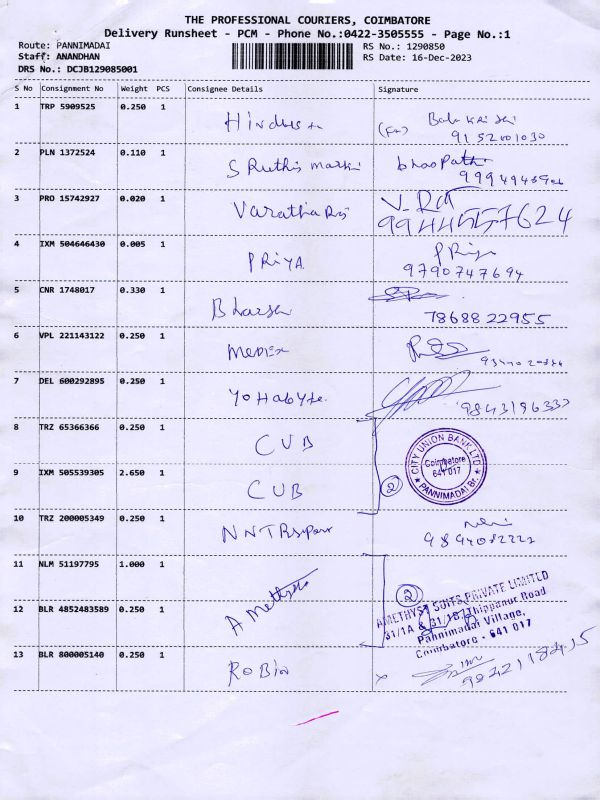 THE PROFESSIONAL COURIERS, COIMBATORE
Delivery Runsheet - PCM - Phone No.:0422-3505555 - Page No.:1
Route: PANNIMADAI RS No.: 1290850
Staff: ANANDHAN RS Date: 16-Dec-2023
DRS No.: DCJB129085001
S No Consignment No Weight PCS Consignee Details Signature
1 TRP 5909525 0.250 1
9152001030
2 PLN 1372524 0.110 1
3 PRO 15742927 0.020 1
4 IXM 504646430 0.005 1 PRiYA Priya
9790747694
5 CNR 1748017 0.330 1
7868822955
6 VPL 221143122 0.250 1 MEDEX
7 DEL 600292895 0.250 1
8 TRZ 65366366 0.250 1 CUB
CITY UNION BANK LTD
Coimbatore
641 017
PANNIMADAI Br.
9 IXM 505539305 2.650 1 CUB 2
10 TRZ 200005349 0.250 1
11 NLM 51197795 1.000 1 2
AMETHYST SUITS PRIVATE LIMITED
31/1A & 31/1B, Thippanur Road
Pannimadai Village,
Coimbatore - 641 017
12 BLR 4852483589 0.250 1
13 BLR 800005140 0.250 1 ROBIN x